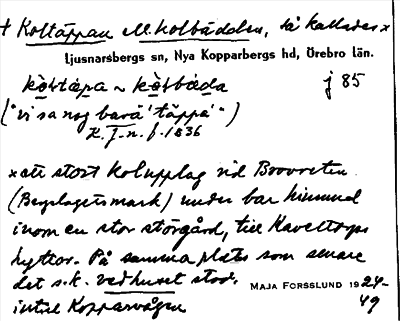 + Koltäppan el. Kolbädden, så kallades x
Ljusnarsbergs sn, Nya Kopparbergs hd, Örebro län.
kòltäpa ~ kòlbäda j 85
("vi sa nog bara 'täppa'")
K. J. n. f. 1836
x ett stort kolupplag vid Bovreten
(Bergslagets mark) under bar himmel
inom en stor störgård, till Kaveltorps
hyttor. På samma plats som senare
det s.k. vedhuset stod.
intill Kopparvägen
MAJA FORSSLUND 1924-
49